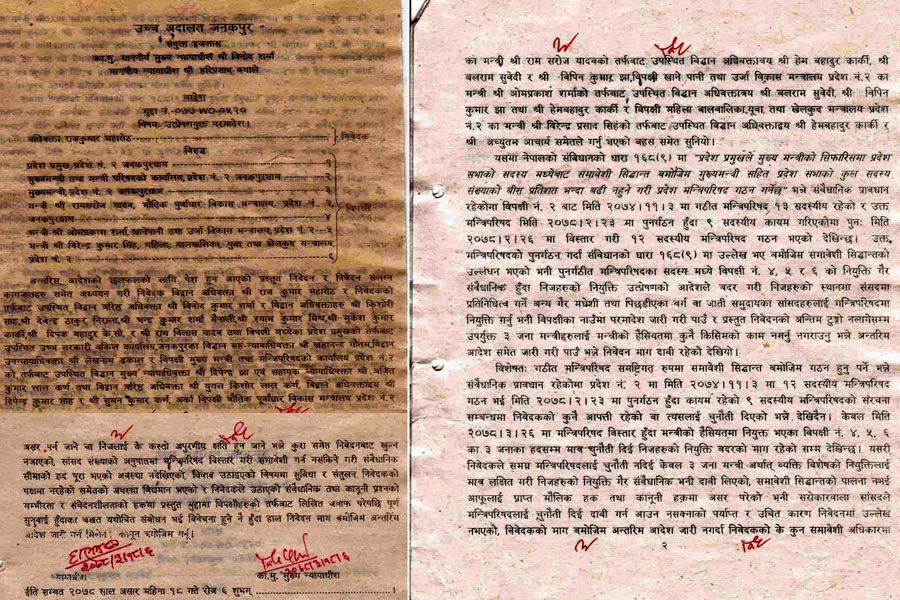 उच्च अदालत जनकपुर
संयुक्त इजलास
का.मु. माननीय मुख्य न्यायाधीश श्री विनोद शर्मा
माननीय न्यायाधीश श्री हरिप्रसाद बगाले
आदेश
मुद्दा नं.-०७७-WO-०५२०
विषयः उत्प्रेषणयुक्त परमादेश।
अधिवक्ता राजकुमार महासेठ निवेदक
विरुद्ध
प्रदेश प्रमुख, प्रदेश नं. २ जनकपुरधाम १
मुख्यमन्त्री तथा मन्त्री परिषदको कार्यालय, प्रदेश नं. २ जनकपुरधाम २
मुख्यमन्त्री, प्रदेश नं. २ जनकपुरधाम ३
मन्त्री श्री रामसरोज यादव, भौतिक पुर्वाधार विकास मन्त्रालय, प्रदेश नं. २ विपक्षी
जनकपुरधाम ४
मन्त्री श्री ओमप्रकाश शर्मा खानेपानी तथा उर्जा विकास मन्त्रालय, प्रदेश नं. २ ५
मन्त्री श्री विरेन्द्र कुमार सिंह, महिला, बालबालिका, युवा तथा खेलकुद मन्त्रालय,
प्रदेश नं. २ ६
अन्तरिम आदेशको छलफलको लागि पेश हुन आएको प्रस्तुत निवेदन र निवेदन संलग्न
कागजातहरु समेत अध्ययन गरी निवेदक विद्वान अधिवक्ता श्री राज कुमार महासेठ र निवेदकको
तर्फबाट उपस्थित विद्वान वरिष्ठ अधिवक्ता श्री विनोद कुमार शर्मा र विद्वान अधिवक्ताहरु श्री किशोरी
साह, श्री देवेन्द्र ठाकुर, श्री चन्द्र शर्मा श्री श्याम कुमार मिश्र, श्री मुकेश कुमार
कार्की, श्री दिपक बहादुर के.सी. र श्री राम बिलास यादव तथा विपक्षी मध्येका प्रदेश प्रमुखको तर्फबाट
उपस्थित उच्च सरकारी वकिल कार्यालय, जनकपुरका विद्वान सह-न्यायाधिवक्ता श्री ब्रह्मानन्द गौतम, विद्वान
उपन्यायाधिवक्ता श्री लेखनाथ ढकाल र विपक्षी मुख्य मन्त्री तथा मन्त्रिपरिषदको कार्यालय प्रदेश नं.२
को तर्फबाट उपस्थित विद्वान मुख्य न्यायाधिवक्ता श्री दिपेन्द्र झा एवं सहायक न्यायाधिवक्ता श्री अजित
कुमार लाल कर्ण तथा विद्वान वरिष्ठ अधिवक्ता श्री युगल किशोर लाल कर्ण, विद्वान अधिवक्ताद्वय श्री
दिपेन्द्र कुमार साह र श्री सुमन कुमार कर्ण, अर्का विपक्षी भौतिक पूर्वाधार विकास मन्त्रालय प्रदेश नं.२
असर पर्न जाने वा निजलाई के कस्तो अपुरणीय क्षति हुन जाने भन्ने कुरा समेत निवेदनबाट खुल्न
नआएको, सांसद संख्याको अनुपातमा मन्त्रिपरिषद विस्तार गरी समावेशी गर्न नसकिने गरी संवैधानिक
सीमाको हद पूरा भएको अवस्था नदेखिएको, विवाद उठाइएको विषयमा सुविधा र संतुलन निवेदकको
पक्षमा नरहेको समेतको अवस्था विद्यमान भएको र निवेदकले उठाएको संवैधानिक तथा कानूनी प्रश्नको
गम्भीरता र संवेदनशीलताको हकमा प्रस्तुत मुद्दामा विपक्षीहरुको तर्फबाट लिखित जवाफ परेपछि पूर्ण
सुनुवाई हुँदाका बखत यथोचित संबोधन भई विवेचना हुने नै हुँदा हाल निवेदन माग बमोजिम अन्तरिम
आदेश जारी गर्न मिलेन। कानून बमोजिम गर्नु।
२०७८।३।१८।६ २०७८।३।१८।६
न्यायाधीश का.मु. मुख्य न्यायाधीश
ईति सम्बत २०७८ साल असार महिना १८ गते रोज ६ शुभम् ।
का मन्त्री श्री राम सरोज यादवको तर्फबाट उपस्थित विद्वान अधिवक्तात्रय श्री हेम बहादुर कार्की, श्री
बलराम सुवेदी र श्री बिपिन कुमार झा, विपक्षी खाने पानी तथा उर्जा विकास मन्त्रालय प्रदेश नं.२ का
मन्त्री श्री ओमप्रकाश शर्माको तर्फबाट उपस्थित विद्वान अधिवक्तात्रय श्री बलराम सुवेदी, श्री बिपिन
कुमार झा तथा श्री हेमबहादुर कार्की र विपक्षी महिला बालबालिका, युवा तथा खेलकुद मन्त्रालय प्रदेश
नं.२ का मन्त्री श्री बिरेन्द्र प्रसाद सिंहको तर्फबाट उपस्थित विद्वान अधिवक्ताद्वय श्री हेमबहादुर कार्की र
श्री अच्युतम आचार्य समेतले गर्नु भएको बहस समेत सुनियो।
यसमा नेपालको संविधानको धारा १६८(९) मा "प्रदेश प्रमुखले मुख्य मन्त्रीको सिफारिसमा प्रदेश
सभाको सदस्य मध्येबाट समावेशी सिद्धान्त बमोजिम मुख्यमन्त्री सहित प्रदेश सभाको कुल सदस्य
संख्याको बीस प्रतिशत भन्दा बढी नहुने गरी प्रदेश मन्त्रिपरिषद गठन गर्नेछ" भन्ने संवैधानिक प्रावधान
रहेकोमा विपक्षी नं. २ बाट मिति २०७४।११।३ मा गठीत मन्त्रिपरिषद १३ सदस्यीय रहेको र उक्त
मन्त्रिपरिषद मिति २०७८।२।२३ मा पुनर्गठन हुँदा ९ सदस्यीय कायम गरिएकोमा पुनः मिति
२०७८।२।२६ मा विस्तार गरी १२ सदस्यीय मन्त्रिपरिषद गठन भएको देखिन्छ। उक्त,
मन्त्रिपरिषदको पुनर्गठन गर्दा संविधानको धारा १६८(९) मा उल्लेख भए बमोजिम समावेशी सिद्धान्तको
उल्लंघन भएको भनी पुनर्गठीत मन्त्रिपरिषदका सदस्य मध्ये विपक्षी नं. ४, ५ र ६ को नियुक्ति गैर
संवैधानिक हुँदा निजहरुको नियुक्ति उत्प्रेषणको आदेशले बदर गरी निजहरुको स्थानमा संसदमा
प्रतिनिधित्व गर्ने अन्य गैर मधेशी तथा पिछडीएका वर्ग वा जाती समुदायका सांसदहरुलाई मन्त्रिपरिषदमा
नियुक्ति गर्नु भनी विपक्षीका नाउँमा परमादेश जारी गरी पाउँ र प्रस्तुत निवेदनको अन्तिम टुङ्गो नलागेसम्म
उपर्युक्त ३ जना मन्त्रीहरुलाई मन्त्रीको हैसियतमा कुनै किसिमको काम नगर्नु नगराउनु भन्ने अन्तरिम
आदेश समेत जारी गरी पाउँ भन्ने निवेदन माग दावी रहेको देखियो।
विशेषतः गठीत मन्त्रिपरिषद समष्टिगत रुपमा समावेशी सिद्धान्त बमोजिम गठन हुनु पर्ने भन्ने
संवैधानिक प्रावधान रहेकोमा प्रदेश नं. २ मा मिति २०७४।११।३ मा १२ सदस्यीय मन्त्रिपरिषद
गठन भई मिति २०७८।२।२३ मा पुनर्गठन हुँदा कायम रहेको ९ सदस्यीय मन्त्रिपरिषदको संरचना
सम्बन्धमा निवेदकको कुनै आपत्ती रहेको वा त्यसलाई चुनौती दिएको भन्ने देखिँदैन। केवल मिति
२०७८।३।२६ मा मन्त्रिपरिषद विस्तार हुँदा मन्त्रीको हैसियतमा नियुक्त भएका विपक्षी नं. ४, ५, ६
का ३ जनाका हदसम्म मात्र चुनौती दिई निजहरुको नियुक्ति बदरको माग रहेको सम्म देखिन्छ। यसरी
निवेदकले समग्र मन्त्रिपरिषदलाई चुनौती नदिई केवल ३ जना मन्त्री अर्थात् व्यक्ति विशेषको नियुक्तिलाई
मात्र लक्षित गरी निजहरुको नियुक्ति गैर संवैधानिक भनी दावी लिएको, समावेशी सिद्धान्तको पालना नभई
आफूलाई प्राप्त मौलिक हक तथा कानूनी हकमा असर परेको भनी सरोकारवाला सांसदले
मन्त्रिपरिषदलाई चुनौती दिई दावी गर्न आउन नसक्नाको पर्याप्त र उचित कारण निवेदनमा उल्लेख
नभएको, निवेदकको माग बमोजिम अन्तरिम आदेश जारी नगर्दा निवेदकको के कुन समावेशी अधिकारमा
२